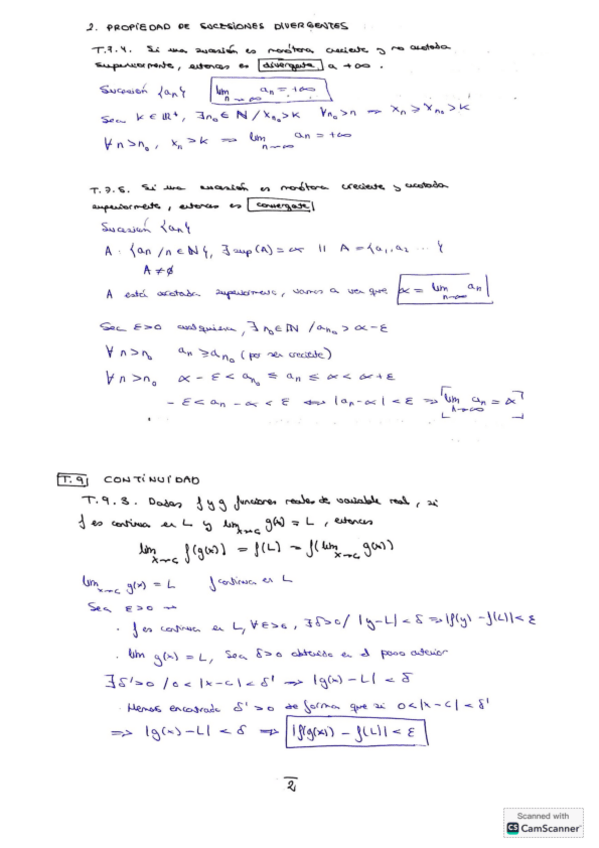 2. PROPIEDAD DE SUCESIONES DIVERGENTES
T.7.4. Si una sucesión es monótona creciente y no acotada
superiormente, entonces es divergente a +∞.
Sucesión {an} lim n→∞ an = +∞
Sea k ∈ ℝ+, ∃n₀ ∈ ℕ / Xn₀ > k ∀n₀ > n ⇒ Xn ≥ Xn₀ > k
∀ n > n₀, xn > k ⇒ lim n→∞ an = +∞
T.7.5. Si una sucesión es monótona creciente y acotada
superiormente, entonces es convergente
Sucesión {an}
A = {an / n ∈ ℕ}, ∃ sup(A) = α || A = {a₁, a₂ ... }
A ≠ ∅
A está acotada superiormente, vamos a ver que α = lim n→∞ an
Sea ε>0 cualquiera, ∃ n₀ ∈ ℕ / an₀ > α - ε
∀ n > n₀ an ≥ an₀ (por ser creciente)
∀ n > n₀ α - ε < an₀ ≤ an ≤ α < α + ε
- ε < an - α < ε ⇔ |an - α| < ε ⇒ lim n→∞ an = α
T.9 CONTINUIDAD
T.9.3. Dadas f y g funciones reales de variable real, si
f es continua en L y lim x→c g(x) = L, entonces
lim x→c f(g(x)) = f(L) = f(lim x→c g(x))
lim x→c g(x) = L f continua en L
Sea ε>0 →
· f es continua en L, ∀ε>0, ∃δ>0 / |y-L| < δ ⇒ |f(y) - f(L)| < ε
· lim g(x) = L, Sea δ>0 obtenido en el paso anterior
∃δ'>0 / 0 < |x - c| < δ' ⇒ |g(x) - L| < δ
· Hemos encontrado δ'>0 de forma que si 0 < |x - c| < δ'
⇒ |g(x) - L| < δ ⇒ |f(g(x)) - f(L)| < ε
2
Scanned with
CS CamScanner